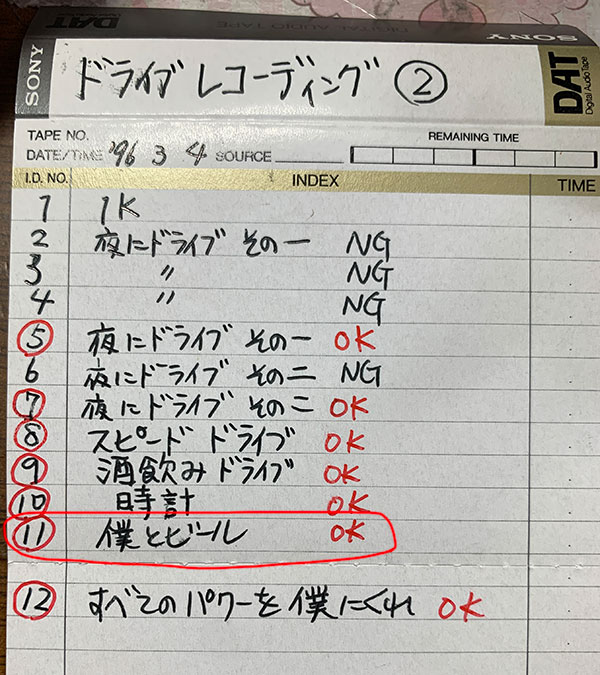 DIGITAL AUDIO TAPE
SONY
SONY ドライブ レコーディング ② DAT Digital Audio Tape
TAPE NO.
REMAINING TIME
DATE/TIME '96 3 4 SOURCE
I.D. NO. INDEX TIME
1 1K
2 夜にドライブ その一 NG
3 〃 NG
4 〃 NG
⑤ 夜にドライブ その一 OK
6 夜にドライブ その二 NG
⑦ 夜にドライブ その二 OK
⑧ スピード ドライブ OK
⑨ 酒飲みドライブ OK
⑩ 時計 OK
⑪ 僕とビール OK
⑫ すべてのパワーを僕にくれ OK